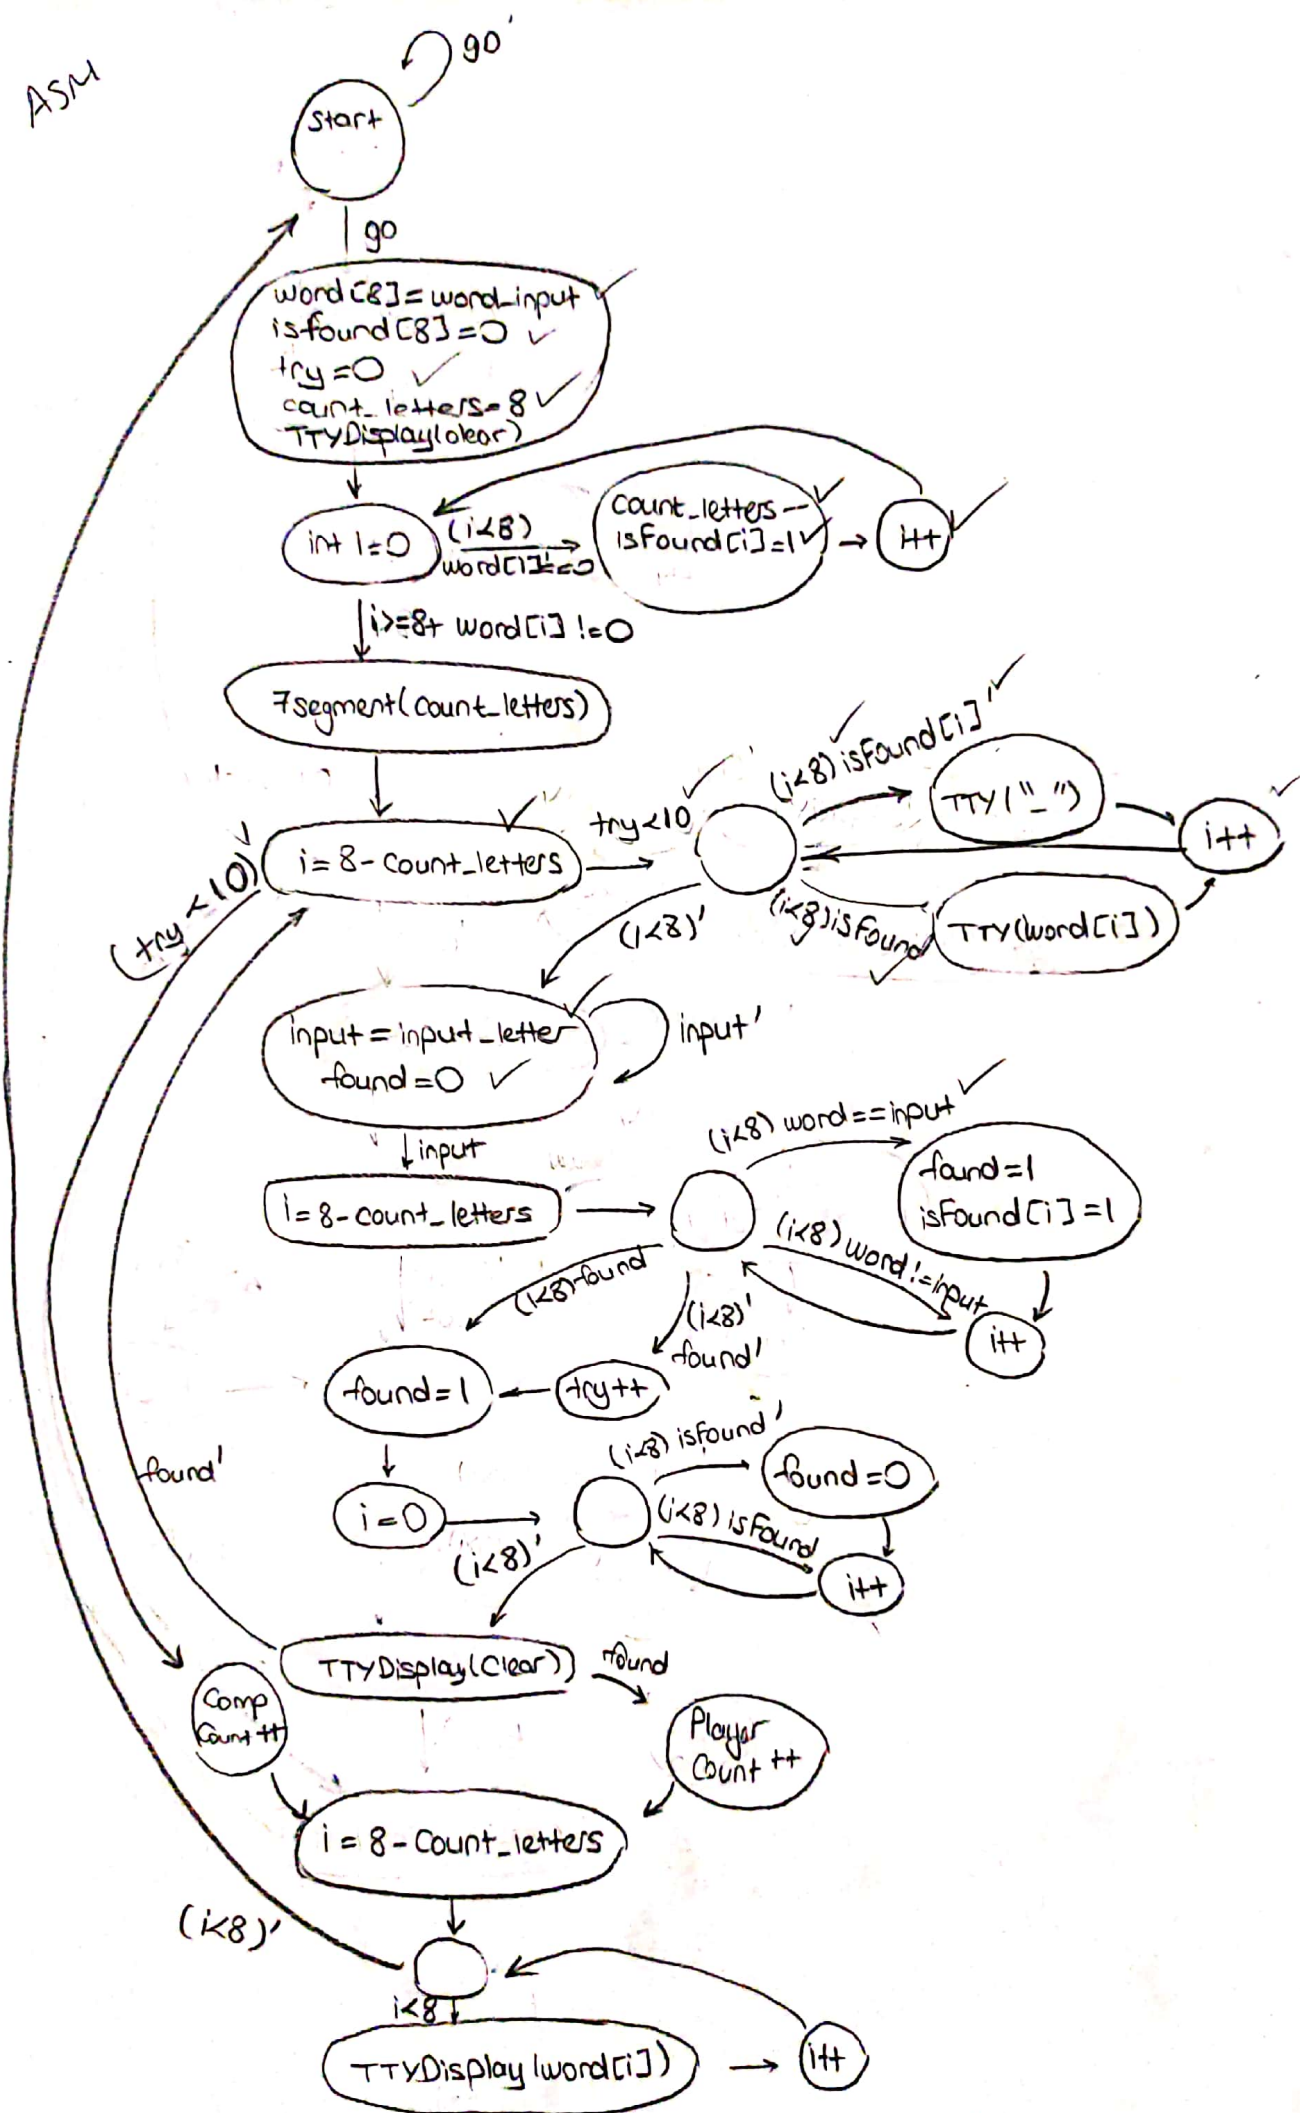 ASM
go'
start
go
word[8]=word_input
isfound[8]=0
try=0
count_letters=8
TTYDisplay(clear)
int i=0
(i<8)
word[i]==0
count_letters--
isFound[i]=1
i++
i>=8+ word[i] !=0
7segment(count_letters)
i=8-count_letters
try<10
(i<8) isFound[i]'
TTY("_")
i++
(try<10)'
(i<8)'
(i<8)isFound
TTY(word[i])
input=input_letter
found=0
input'
input
(i<8) word==input
found=1
isFound[i]=1
i=8-count_letters
(i<8) word!=input
i++
(i<8)found
(i<8)'
found'
found=1
try++
(i<8) isFound'
found=0
found'
i=0
(i<8) isFound
i++
(i<8)'
TTYDisplay(Clear)
found
Comp
Count++
Player
Count++
i=8-Count_letters
(i<8)'
i<8
TTYDisplay(word[i])
i++